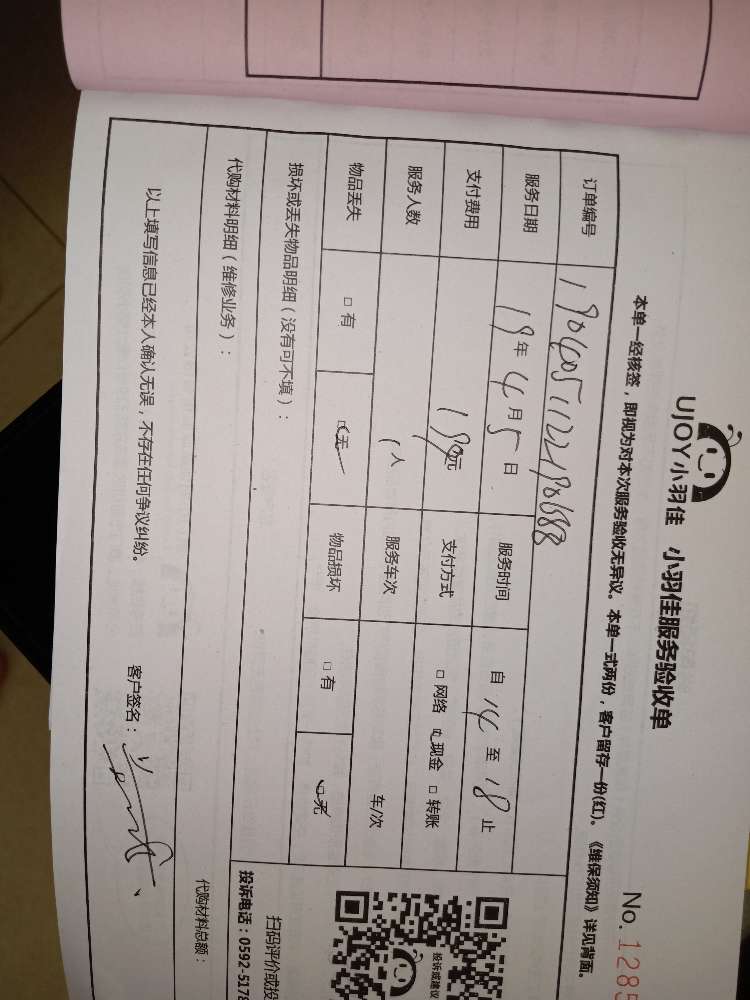 UJOY小羽佳 小羽佳服务验收单
No. 1285
本单一经核签，即视为对本次服务验收无异议。本单一式两份，客户留存一份(红)。《维保须知》详见背面。
订单编号
服务日期 19年 4月 5日 服务时间 自 14 至 18 止
支付费用 190元 支付方式 □ 网络 □ 现金 □ 转账
服务人数 1人 服务车次 车/次
物品丢失 □ 有 □ 无 物品损坏 □ 有 □ 无
损坏或丢失物品明细（没有可不填）：
代购材料明细（维修业务）：
代购材料总额：
以上填写信息已经本人确认无误，不存在任何争议纠纷。 客户签名：
投诉或建议
扫码评价或投
投诉电话：0592-5178